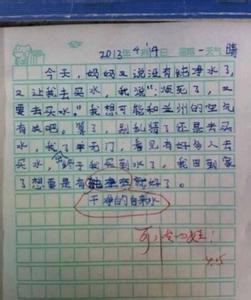 2013年4月19日 星期一 天气 晴
今天，妈妈又说没有纯净水了，
又让我去买水，我说："烦死了，又
要去买水。"我想可能和兰州的空气
有关吧。算了，别纠结了还是去买
水，我了半天门，看见有好多人去
买水，终于我买到水了，我回到家
了想要是有纯净水就好了。
干净的自来水
可怜的娃！
4.15